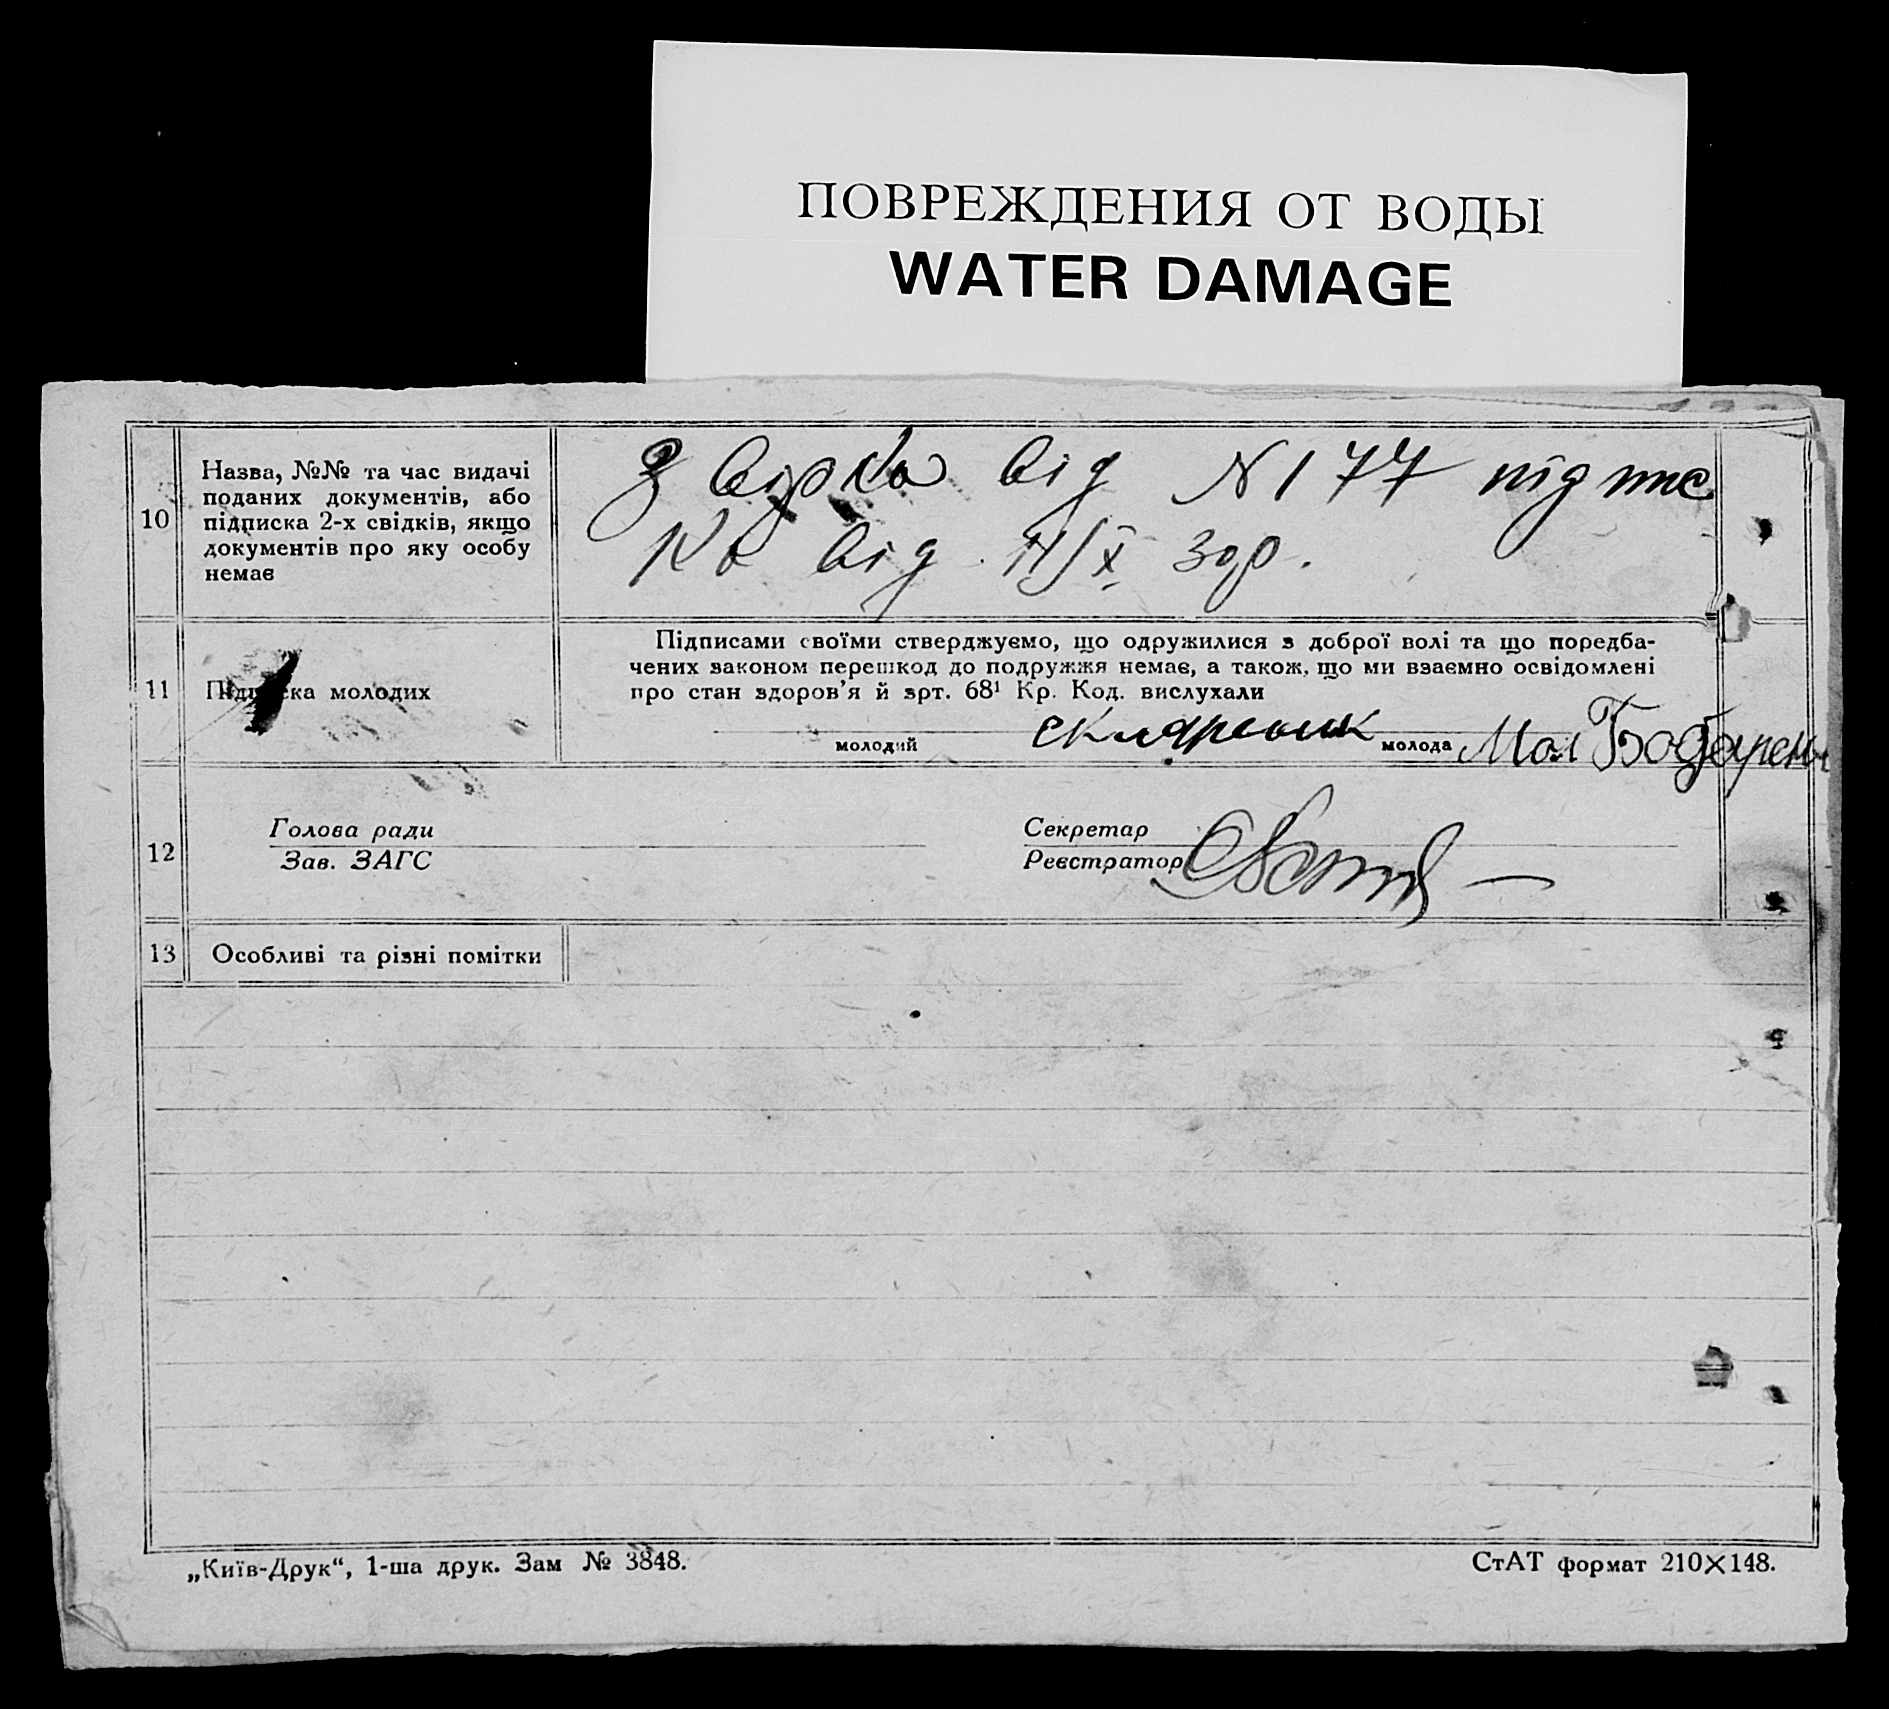 ПОВРЕЖДЕНИЯ ОТ ВОДЫ
WATER DAMAGE
10
Назва, №№ та час видачі
поданих документів, або
підписка 2-х свідків, якщо
документів про яку особу
немає
від N 177 підпис
ка від 11/X 30р.
11
Підписка молодих
Підписами своїми стверджуємо, що одружилися з доброї волі та що поредба-
чених законом перешкод до подружжя немає, а також, що ми взаємно освідомлені
про стан здоров'я й зрт. 68¹ Кр. Код. вислухали
молодий
молода
12
Голова ради
Зав. ЗАГС
Секретар
Реєстратор
13
Особливі та різні помітки
„Київ-Друк“, 1-ша друк. Зам № 3848.
СтАТ формат 210×148.